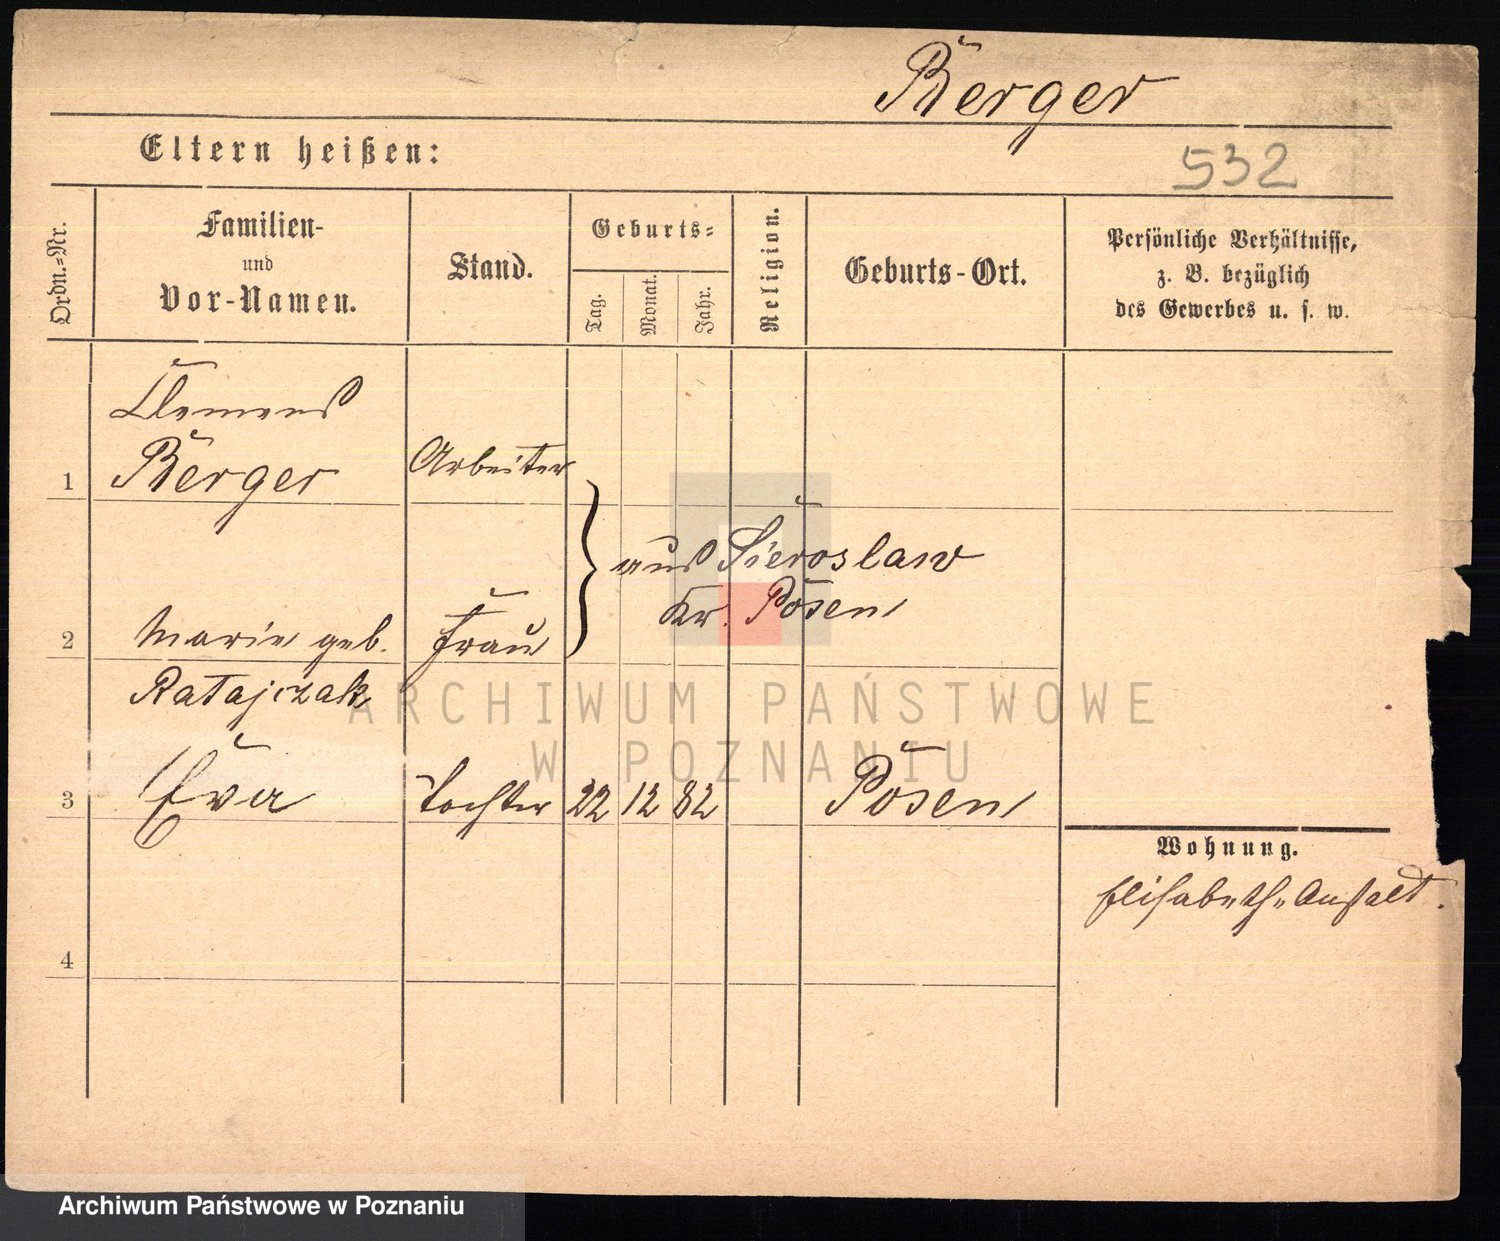 Berger
Eltern heißen:
532
Ordn.-Nr.
Familien-
und
Vor-Namen.
Stand.
Geburts-
Tag.
Monat.
Jahr.
Religion.
Geburts-Ort.
Persönliche Verhältnisse,
z. B. bezüglich
des Gewerbes u. s. w.
Clemens
1 Berger Arbeiter
aus Sieroslaw
Kr. Posen
2 Marie geb. Frau
Ratajczak
3 Eva Tochter 22 12 82 Posen
Wohnung.
Elisabeth-Anstalt.
4
ARCHIWUM PAŃSTWOWE
W POZNANIU
Archiwum Państwowe w Poznaniu